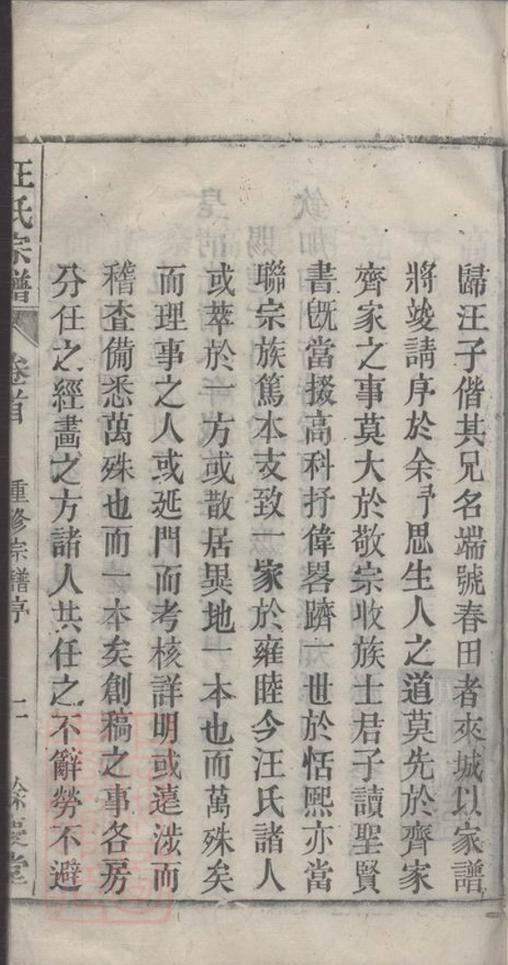 歸汪子偕其兄名端號春田者來城以家譜
將竣請序於余予思生人之道莫先於齊家
齊家之事莫大於敬宗收族士君子讀聖賢
書旣當掇高科抒偉畧躋一世於恬熙亦當
聯宗族篤本支致一家於雍睦今汪氏諸人
或萃於一方或散居異地一本也而萬殊矣
而理事之人或延門而考核詳明或遠涉而
稽查備悉萬殊也而一本矣創稿之事各房
分任之經畫之方諸人共任之不辭勞不避
汪氏宗譜 卷首 重修宗譜序 二 餘慶堂